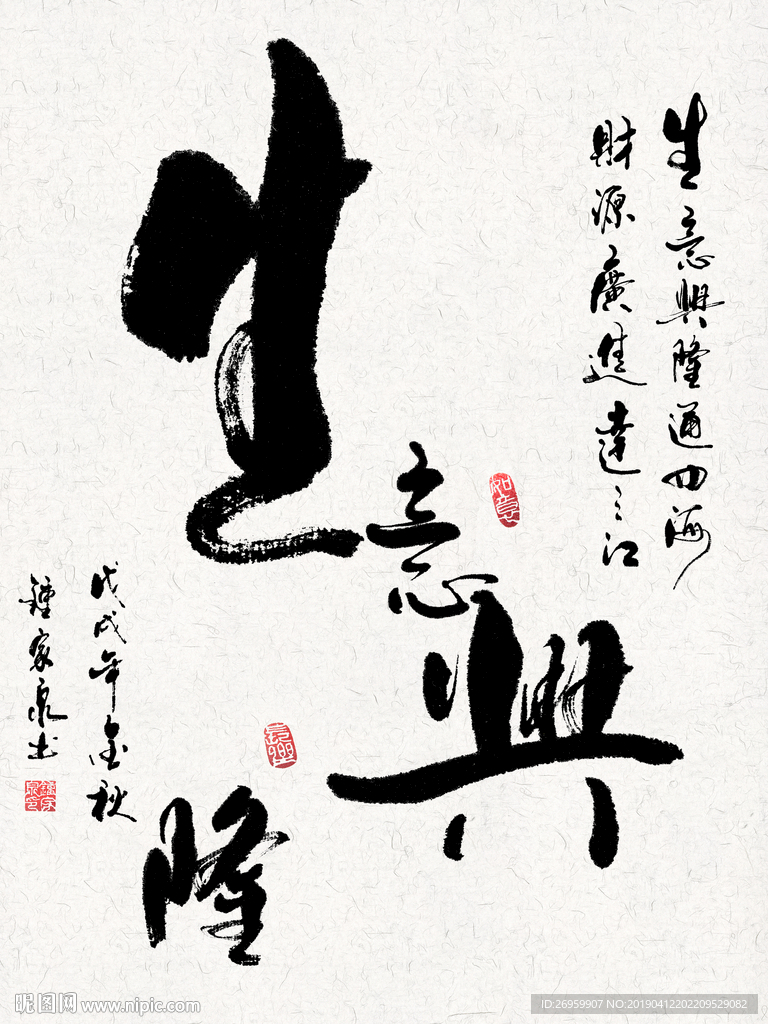 生意興隆
生意興隆通四海
財源廣進達三江
戊戌年金秋
鍾家泉書
如意
昵图网 www.nipic.com
ID:26959907 NO:20190412202209529082